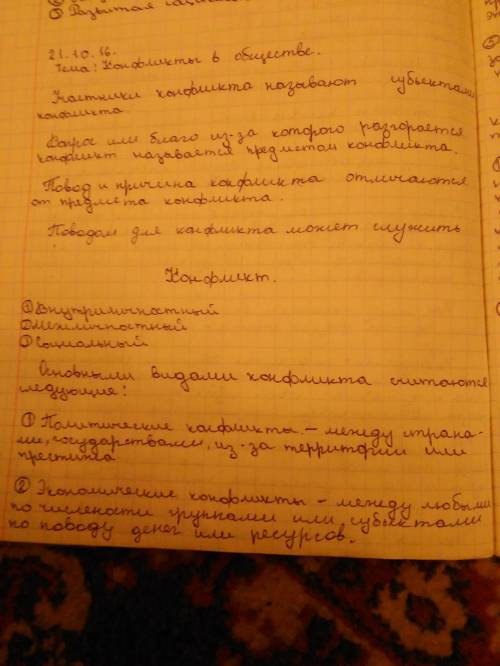 ② Развитая
21.10.16.
Тема: Конфликты в обществе.
Участники конфликта называют субъектами
конфликта.
Вопрос или благо из-за которого разгорается
конфликт называется предметом конфликта.
Повод и причина конфликта отличаются
от предмета конфликта.
Поводом для конфликта может служить
Конфликт.
① Внутриличностный
② межличностный
③ Социальный
Основными видами конфликта считаются
следующие:
① Политические конфликты – между страна-
ми, государствами, из-за территории или
престижа
② Экономические конфликты – между любыми
по числености группами или субъектами
по поводу денег или ресурсов.